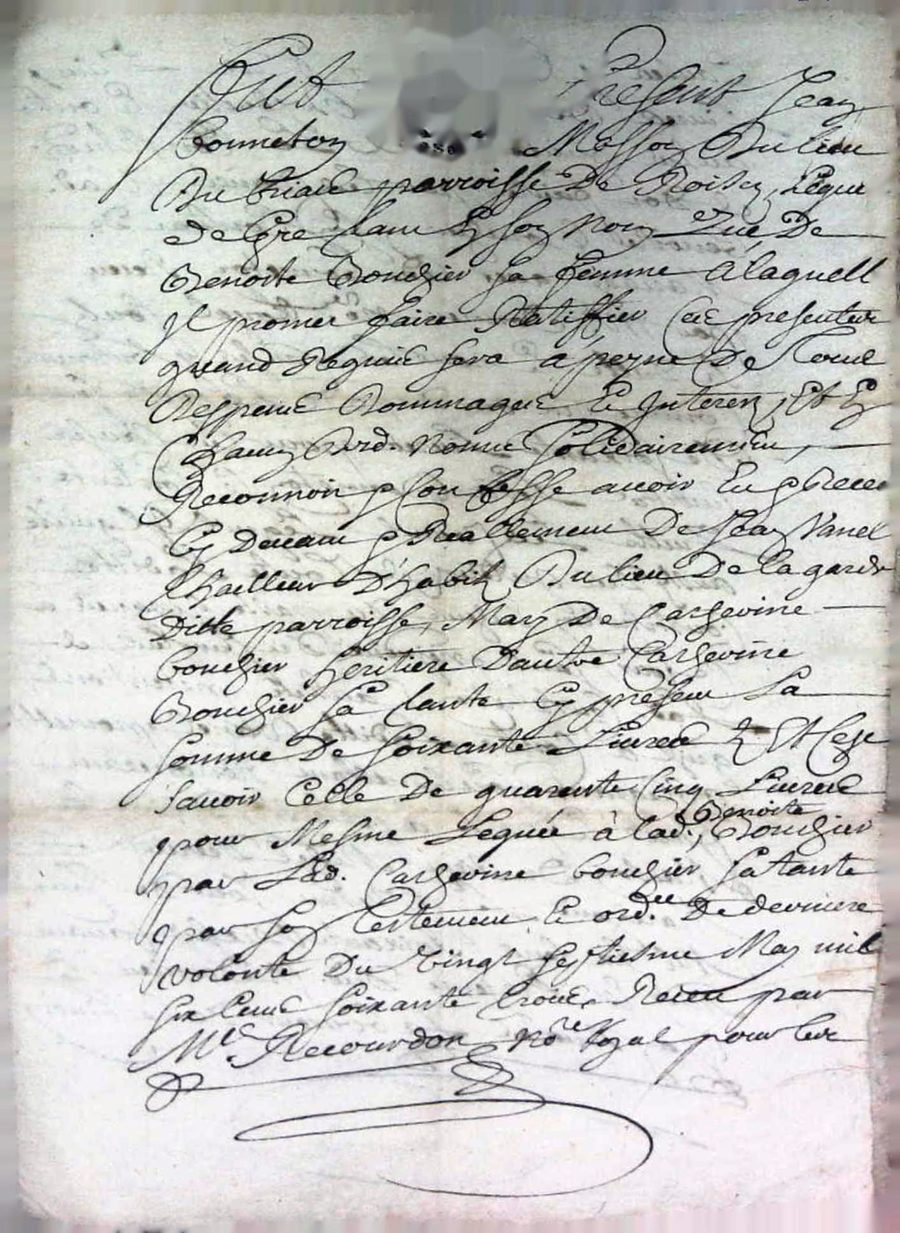 Fut present Jean
bonneton Masson Du lieu
Du parroisse De Roisey, Lequel
de gré son nom Et De
Benoite Bouchier sa femme a laquell
Il promet faire Ratiffier Ces presentes
quand Requis sera a peyne De Tous
Despens Dommages Et Interetz, Et En
Chacun Desd. Noms Solidairement,
Reconnoit & Confesse avoir Eu & Receu
Cy Devant & Reallement De Jean Vanel
Thailleur D'habitz Du lieu De la garde
Ditte parroisse, Mary De Catherine
bouchier heritiere D'autre Catherine
Bouchier sa tante Cy present La
somme De soixante Livres Et Cest
savoir Celle De quarante Cinq Livres
pour Mesme Leguée à lad. Benoite Bouchier
par Lad. Catherine bouchier sa tante
par son testement Et ord.ce De derniere
volonte Du vingt septiesme May mil
six Cens soixante trois, Receu par
Me Recourdon no.re Royal pour les